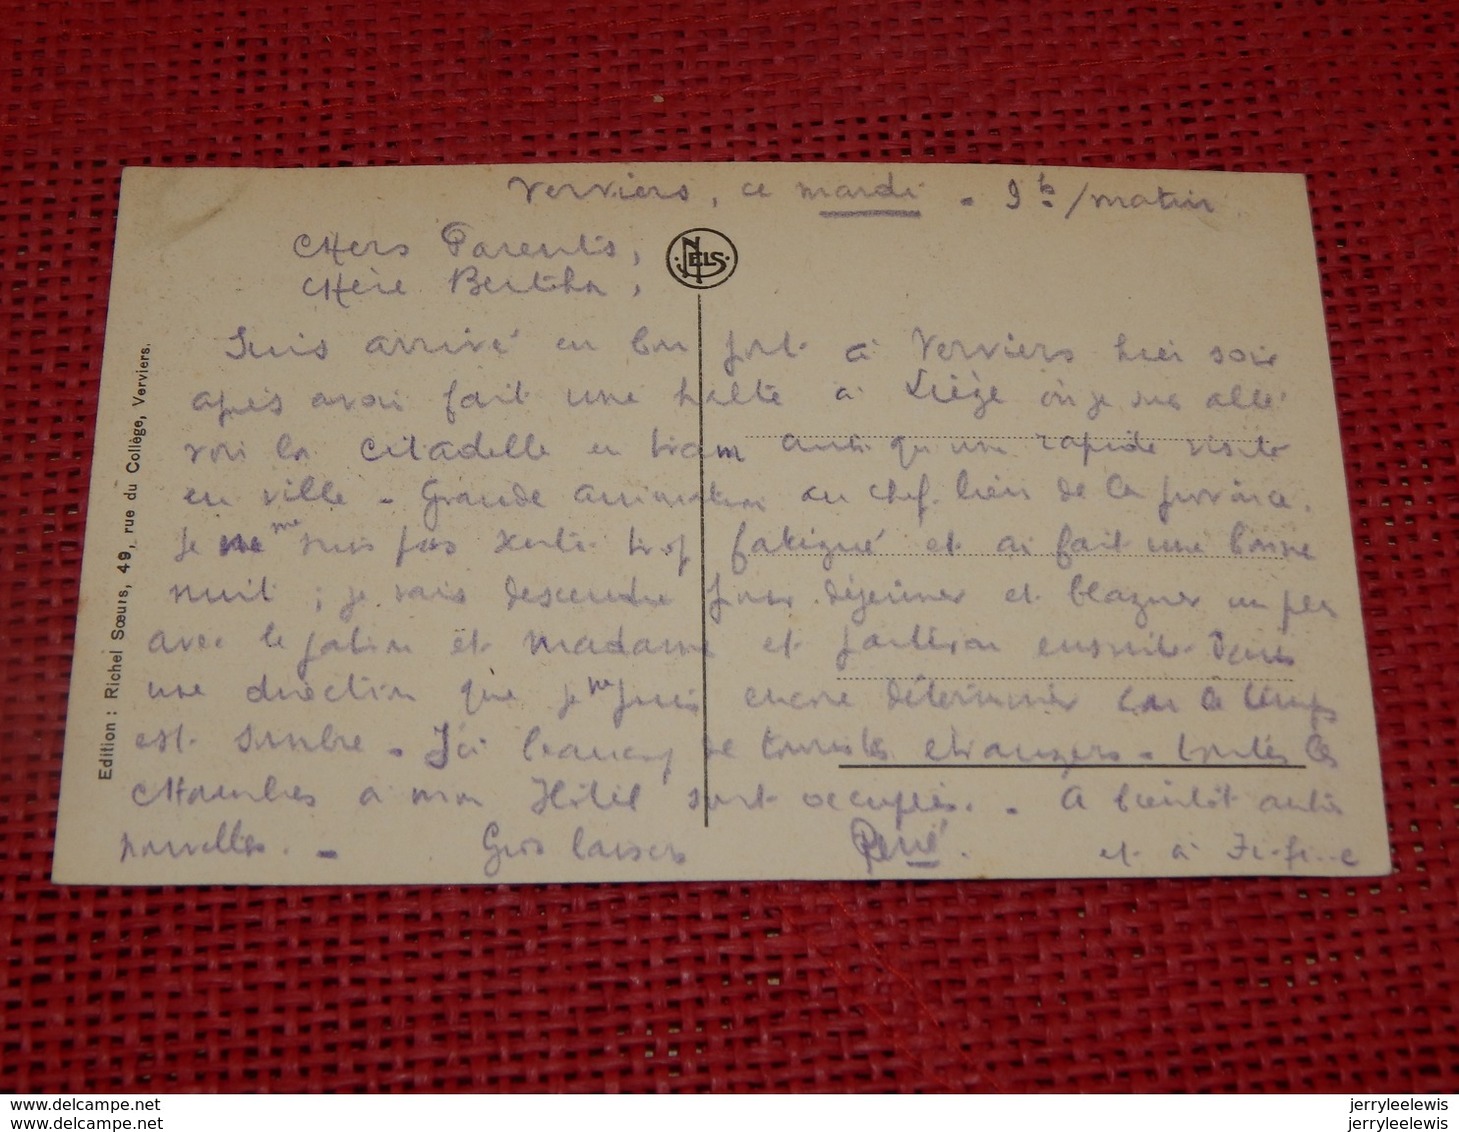 Verviers, ce mardi - 9 h/matin
Chers Parents,
Chère Bertha,
NELS
Suis arrivé en bon port à Verviers hier soir
après avoir fait une halte à Liège où je suis allé
voir la citadelle en tram ainsi qu'une rapide visite
en ville - Grande animation au chef-lieu de la province.
Je ne me suis pas senti trop fatigué et ai fait une bonne
nuit ; je vais descendre pour déjeuner et blaguer un peu
avec le patron et madame et partirai ensuite dans
une direction que je ne puis encore déterminer car le temps
est sombre - Ici beaucoup de touristes étrangers - toutes les
chambres à mon Hôtel sont occupées. - A bientôt autres
nouvelles. - Gros baisers René. et à Fi-fi-e
Edition : Richel Sœurs, 49, rue du Collège, Verviers.
www.delcampe.net
www.delcampe.net
jerryleelewis
jerryleelewis